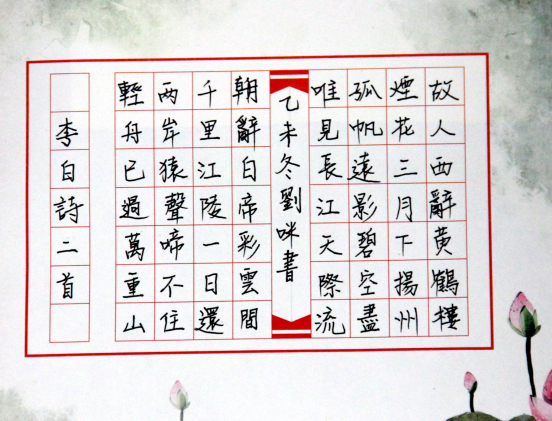 故人西辭黄鶴樓
煙花三月下揚州
孤帆遠影碧空盡
唯見長江天際流
乙未冬劉咪書
朝辭白帝彩雲間
千里江陵一日還
两岸猿聲啼不住
輕舟已過萬重山
李白詩二首